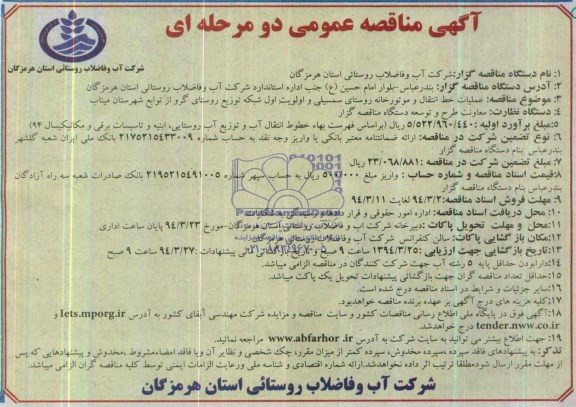 آگهی مناقصه عمومی دو مرحله ای
شرکت آب وفاضلاب روستائی استان هرمزگان
۱: نام دستگاه مناقصه گزار: شرکت آب وفاضلاب روستائی استان هرمزگان
۲: آدرس دستگاه مناقصه گزار: بندرعباس-بلوار امام حسین (ع) جنب اداره استاندارد شرکت آب وفاضلاب روستائی استان هرمزگان
۳: موضوع مناقصه: عملیات خط انتقال و موتورخانه روستای سمسیلی و اولویت اول شبکه توزیع روستای گرو از توابع شهرستان میناب
۴: دستگاه نظارت: معاونت طرح و توسعه دستگاه مناقصه گزار
۵: مبلغ برآورد اولیه: ۵/۵۲۲/۹۶۰/۴۴۰ ریال (براساس فهرست بهاء خطوط انتقال آب و توزیع آب روستایی، ابنیه و تاسیسات برقی و مکانیکیسال ۹۴)
۶: نوع تضمین شرکت در مناقصه: ارائه ضمانتنامه معتبر بانکی یا واریز وجه نقد به حساب شماره ۲۱۷۵۲۱۵۴۳۳۰۰۹ بانک ملی ایران شعبه گلشهر
بندرعباس بنام دستگاه مناقصه گزار
۷: مبلغ تضمین شرکت در مناقصه: ۲۳/۰۶۸/۸۸۱ ریال
۸: قیمت اسناد مناقصه و شماره حساب: واریز مبلغ ۵۰۰/۰۰۰ ریال به حساب سپهر شماره ۲۱۹۵۲۱۵۴۹۱۰۰۵ بانک صادرات شعبه سه راه آزادگان
بندرعباس بنام دستگاه مناقصه گزار
۹: مهلت فروش اسناد مناقصه: ۹۴/۳/۲ لغایت ۹۴/۳/۱۱
۱۰: محل دریافت اسناد مناقصه: اداره امور حقوقی و قرار دادها و رسیدگی به شکایات
۱۱: محل و مهلت تحویل پاکات: دبیرخانه شرکت آب و فاضلاب روستائی استان هرمزگان-مورخ ۹۴/۳/۲۳ پایان ساعت اداری
۱۲: مکان بازگشائی پاکات: سالن کنفرانس شرکت آب وفاضلاب روستائی هرمزگان
۱۳: تاریخ بازگشایی جهت ارزیابی: ۱۳۹۴/۳/۲۵ ساعت ۹ صبح و تاریخ بازگشائی مالی پیشنهادات: ۹۴/۳/۲۷ ساعت ۹ صبح
۱۴: دارابودن حداقل پایه ۵ رشته آب جهت شرکت کنندگان در مناقصه الزامی میباشد.
۱۵: حداقل تعداد مناقصه گران جهت بازگشائی پیشنهادات تحویل یک پاکت میباشد.
۱۶: سایر جزئیات و شرایط در اسناد مناقصه درج شده است.
۱۷: کلیه هزینه های درج آگهی بر عهده برنده مناقصه خواهدبود.
۱۸: آگهی فوق در پایگاه ملی اطلاع رسانی مناقصات کشور و سایت مناقصه و مزایده شرکت مهندسی آبفای کشور به آدرس Iets.mporg.ir و
tender.nww.co.ir درج خواهدشد.
۱۹: جهت اطلاع بیشتر می توانید به سایت شرکت به آدرس www.abfarhor.ir مراجعه نمائید.
تذکر: به پیشنهادهای فاقد سپرده ،سپرده مخدوش، سپرده کمتر از میزان مقرر، چک شخصی و نظایر آن ویا فاقد امضا،مشروط ،مخدوش و پیشنهادهایی که پس
از مهلت مقرر ارسال شودمطلقا ترتیب اثر داده نخواهدشد.ارائه شماره اقتصادی و شناسه ملی ورعایت الزامات ایمنی توسط کلیه مناقصه گران الزامی میباشد.
شرکت آب وفاضلاب روستائی استان هرمزگان